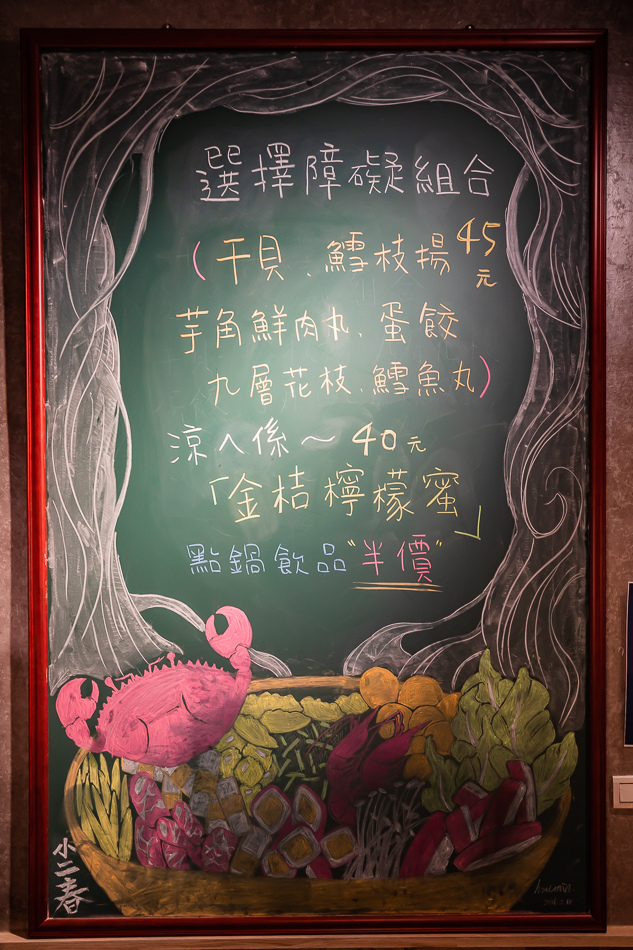 選擇障礙組合
(干貝、鱈枝揚 45元
芋角鮮肉丸、蛋餃
九層花枝、鱈魚丸)
涼ㄟ係～40元
「金桔檸檬蜜」
點鍋飲品"半價"
小二春